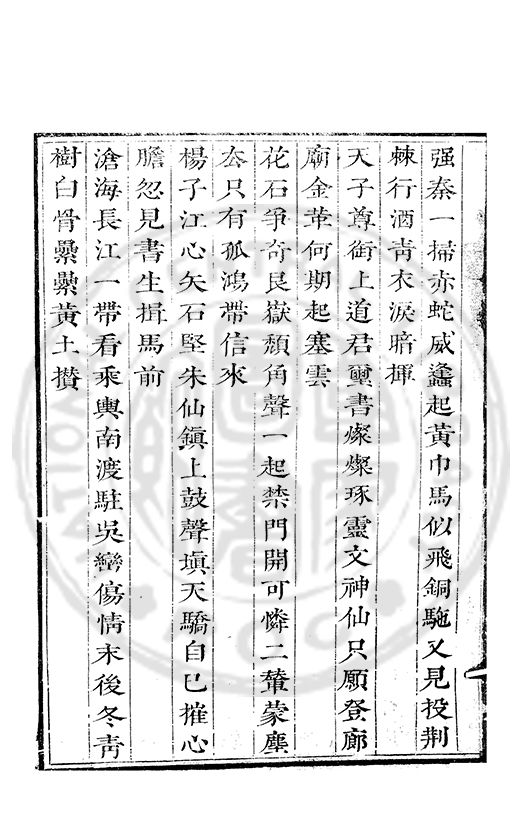 强秦一掃赤蛇威蠭起黃巾馬似飛銅駞又見投荆
棘行酒靑衣淚暗揮
天子尊銜上道君璽書燦燦琢靈文神仙只願登廊
廟金革何期起塞雲
花石爭奇艮嶽頹角聲一起禁門開可憐二輦蒙塵
厺只有孤鴻帶信來
楊子江心矢石堅朱仙鎭上鼓聲塡天驕自已摧心
膽忽見書生揖馬前
滄海長江一帶看乘輿南渡駐吳巒傷情末後冬靑
樹白骨纍纍黃土攅